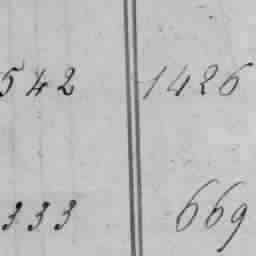 542 1426
333 669